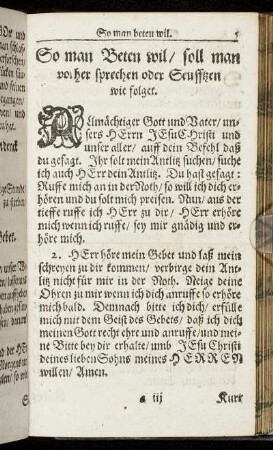 So man beten wil. 5
So man Beten wil / soll man
vorher sprechen oder Seufftzen
wie folget.
Allmächtiger Gott und Vater / un-
sers HErrn JEsu Christi und
unser aller / auf dein Befehl daß
du gesagt. Ihr solt mein Antlitz suchen / suche
ich auch HErr dein Antlitz. Du hast gesagt:
Ruffe mich an in der Noth / so will ich dich er-
hören und du solt mich preisen. Nun / aus der
tieffe ruffe ich HErr zu dir / HErr erhöre
mich wenn ich ruffe / sey mir gnädig und er-
höre mich.
2. HErr höre mein Gebet und laß mein
schreyen zu dir kommen / verbirge dein Ant-
litz nicht für mir in der Noth. Neige deine
Ohren zu mir wenn ich dich anruffe so erhöre
mich bald. Demnach bitte ich dich / erfülle
mich mit dem Geist des Gebets / daß ich dich
meinen Gott recht ehre und anruffe / und mei-
ne Bitte bey dir erhalte / umb JEsu Christi
deines lieben Sohns meines HERREN
willen / Amen.
a iij Kurt